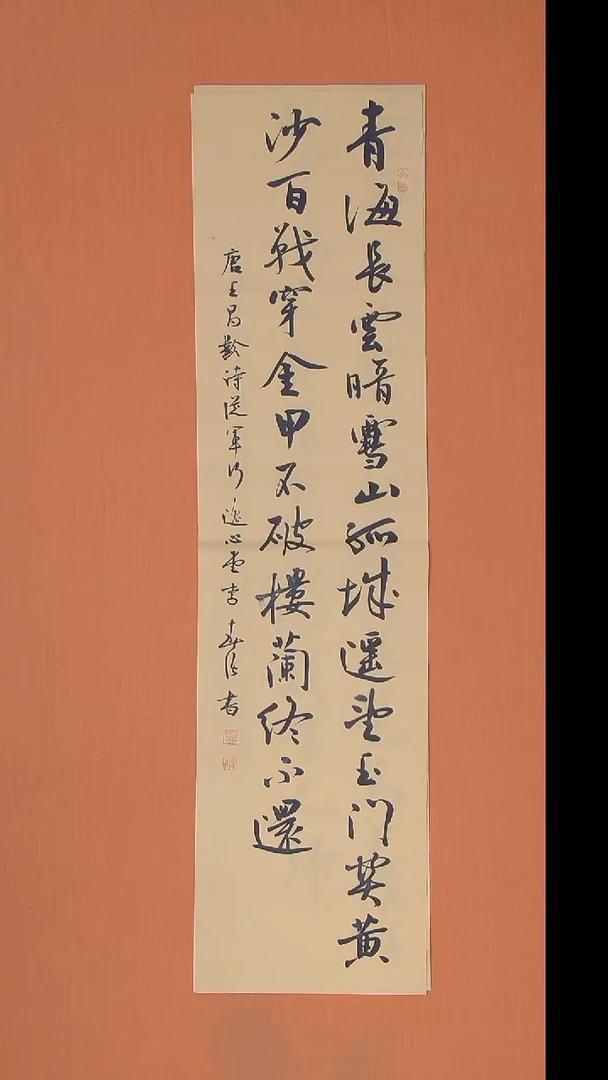 青海長雲暗雪山孤城遥望玉门关黄
沙百戰穿金甲不破樓蘭終不還
唐王昌齡詩從軍行逸心堂李書